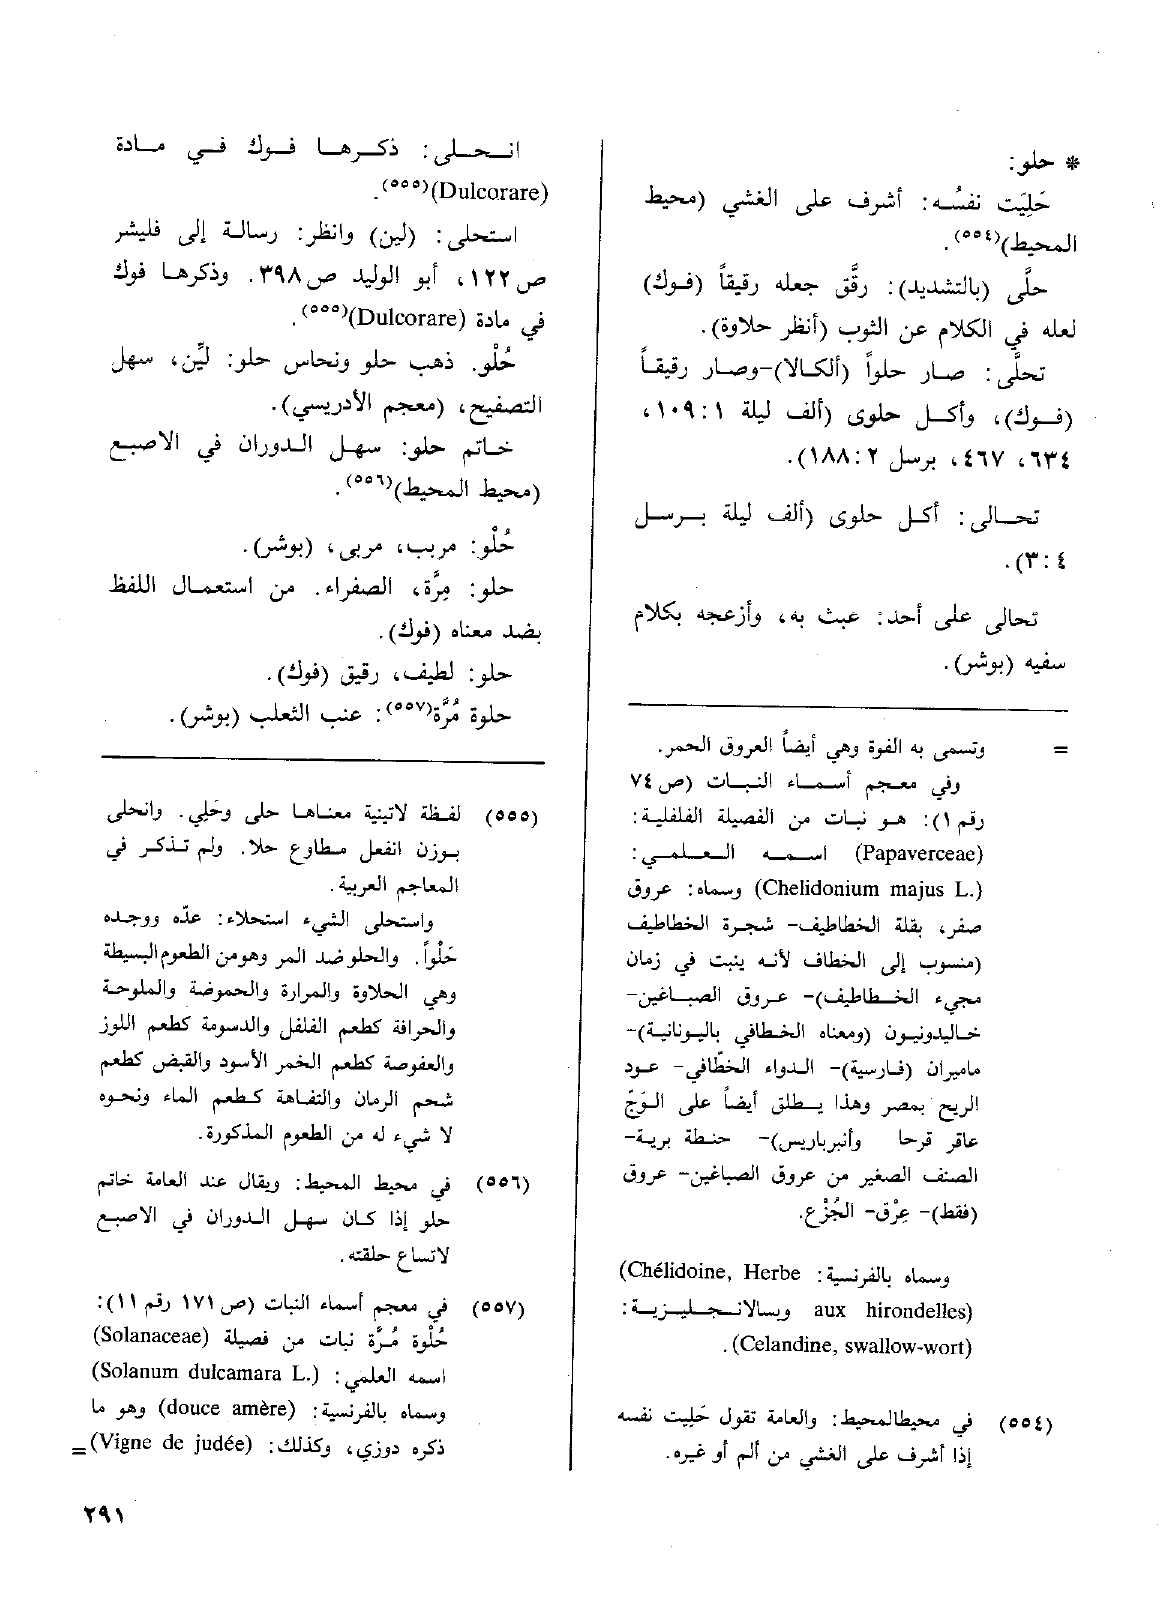 * حلو:
حَلِيَت نفسُه: أشرف على الغشي (محيط
المحيط)(٥٥٤).
حلَّى (بالتشديد): رقَّق جعله رقيقاً (فوك)
لعله في الكلام عن الثوب (أنظر حلاوة).
تحلَّى: صار حلواً (ألكالا)-وصار رقيقاً
(فوك)، وأكل حلوى (ألف ليلة ١: ١٠٩،
٦٣٤، ٤٦٧، برسل ٢: ١٨٨).
تحالى: أكل حلوى (ألف ليلة برسل
٤: ٣).
تحالى على أحد: عبث به، وأزعجه بكلام
سفيه (بوشر).
= وتسمى به الفوة وهي أيضاً العروق الحمر.
وفي معجم أسماء النبات (ص٧٤
رقم ١): هو نبات من الفصيلة الفلفلية:
(Papaverceae) اسمه العلمي:
(Chelidonium majus L.) وسماه: عروق
صفر، بقلة الخطاطيف- شجرة الخطاطيف
(منسوب إلى الخطاف لأنه ينبت في زمان
مجيء الخطاطيف)- عروق الصباغين-
خاليدونيون (ومعناه الخطافي باليونانية)-
ماميران (فارسية)- الدواء الخطّافي- عود
الريح بمصر وهذا يطلق أيضاً على الوَجّ
عاقر قرحا وأنبرباريس)- حنطة برية-
الصنف الصغير من عروق الصباغين- عروق
(فقط)- عِرْق- الجُزْع.
وسماه بالفرنسية: (Chélidoine, Herbe
aux hirondelles) وبسالانجليزية:
(Celandine, swallow-wort).
(٥٥٤) في محيط المحيط: والعامة تقول حَلِيت نفسه
إذا أشرف على الغشي من ألم أو غيره.
انحلى: ذكرها فوك في مادة
(Dulcorare)(٥٥٥).
استحلى: (لين) وانظر: رسالة إلى فليشر
ص١٢٢، أبو الوليد ص٣٩٨. وذكرها فوك
في مادة (Dulcorare)(٥٥٥).
حُلْو. ذهب حلو ونحاس حلو: ليِّن، سهل
التصفيح، (معجم الأدريسي).
خاتم حلو: سهل الدوران في الاصبع
(محيط المحيط)(٥٥٦).
حُلْو: مربب، مربى، (بوشر).
حلو: مِرَّة، الصفراء. من استعمال اللفظ
بضد معناه (فوك).
حلو: لطيف، رقيق (فوك).
حلوة مُرَّة(٥٥٧): عنب الثعلب (بوشر).
(٥٥٥) لفظة لاتينية معناها حلى وحَلِي. وانحلى
بوزن انفعل مطاوع حلا. ولم تذكر في
المعاجم العربية.
واستحلى الشيء استحلاء: عدّه ووجده
حَلْواً. والحلو ضد المر وهو من الطعوم البسيطة
وهي الحلاوة والمرارة والحموضة والملوحة
والحرافة كطعم الفلفل والدسومة كطعم اللوز
والعفوصة كطعم الخمر الأسود والقبض كطعم
شحم الرمان والتفاهة كطعم الماء ونحوه
لا شيء له من الطعوم المذكورة.
(٥٥٦) في محيط المحيط: ويقال عند العامة خاتم
حلو إذا كان سهل الدوران في الاصبع
لاتساع حلقته.
(٥٥٧) في معجم أسماء النبات (ص ١٧١ رقم ١١):
حُلْوة مُرَّة نبات من فصيلة (Solanaceae)
اسمه العلمي: (Solanum dulcamara L.)
وسماه بالفرنسية: (douce amère) وهو ما
ذكره دوزي، وكذلك: (Vigne de judée)=
٢٩١